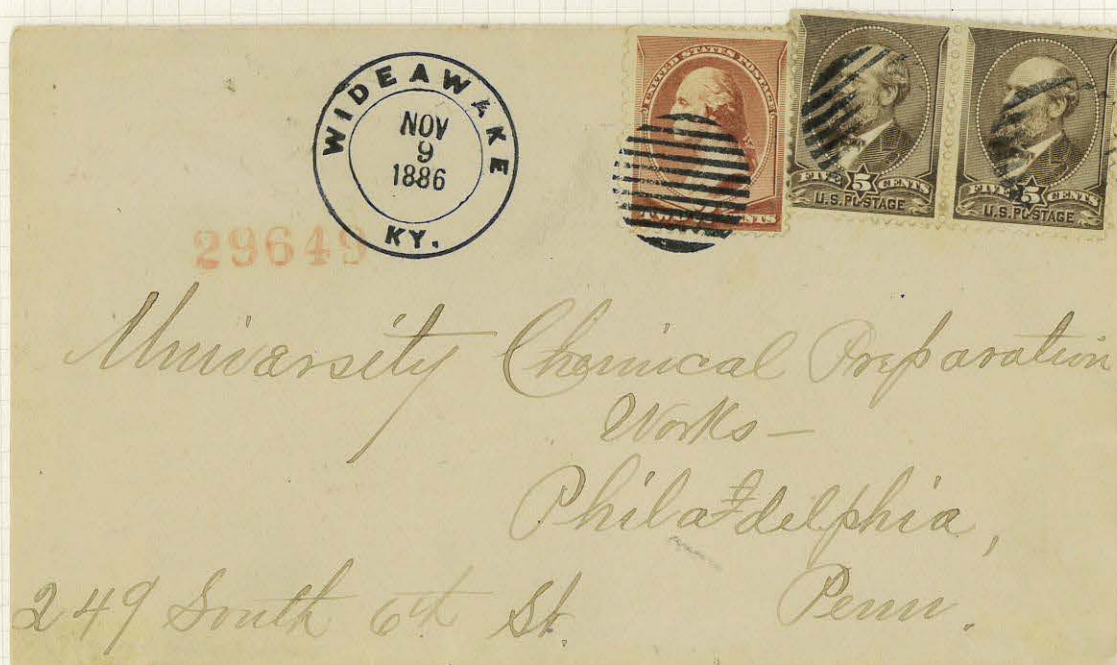 WIDEAWAKE
NOV
9
1886
KY.
UNITED STATES POSTAGE
CENTS
FIVE 5 CENTS
U.S. POSTAGE
FIVE 5 CENTS
U.S. POSTAGE
29649
University Chemical Preparation
Works—
Philadelphia,
Penn.
249 South 6th St.